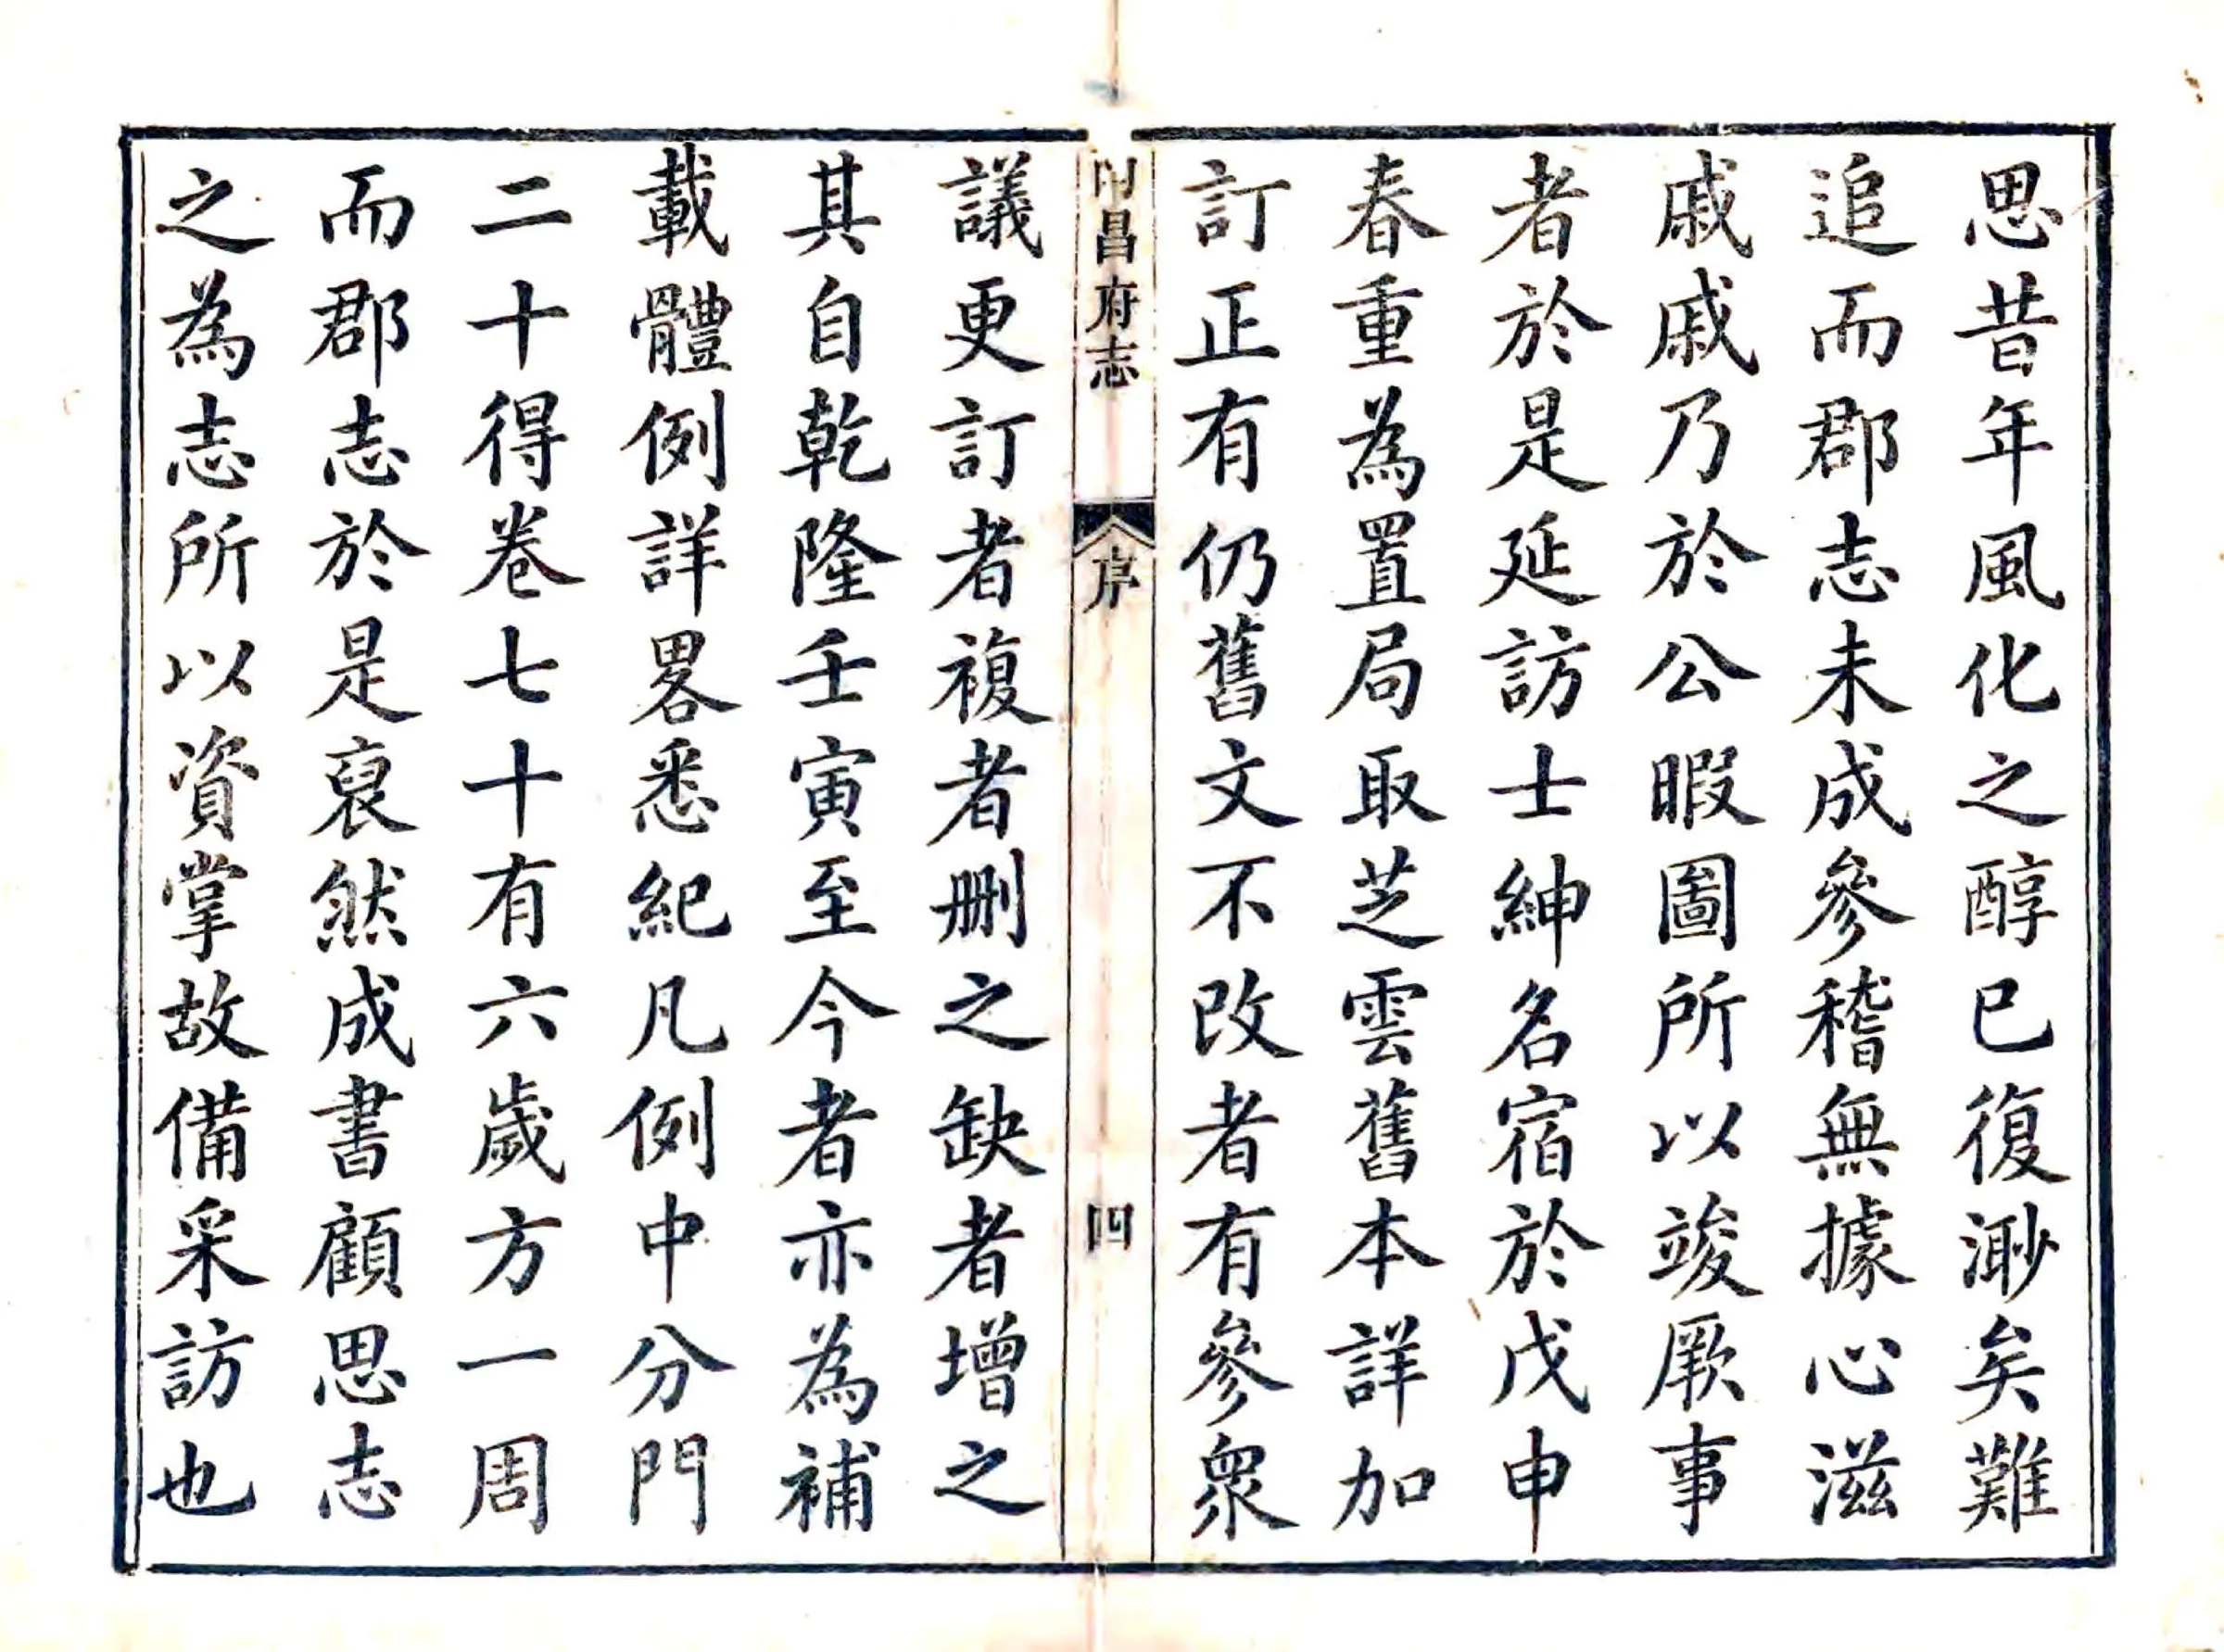 思昔年風化之醇已復渺矣難
追而郡志未成參稽無據心滋
戚戚乃於公暇圖所以竣厥事
者於是延訪士紳名宿於戊申
春重為置局取芝雲舊本詳加
訂正有仍舊文不改者有參眾
昌府志
序
四
議更訂者複者刪之缺者增之
其自乾隆壬寅至今者亦為補
載體例詳畧悉紀凡例中分門
二十得卷七十有六歲方一周
而郡志於是裒然成書顧思志
之為志所以資掌故備采訪也